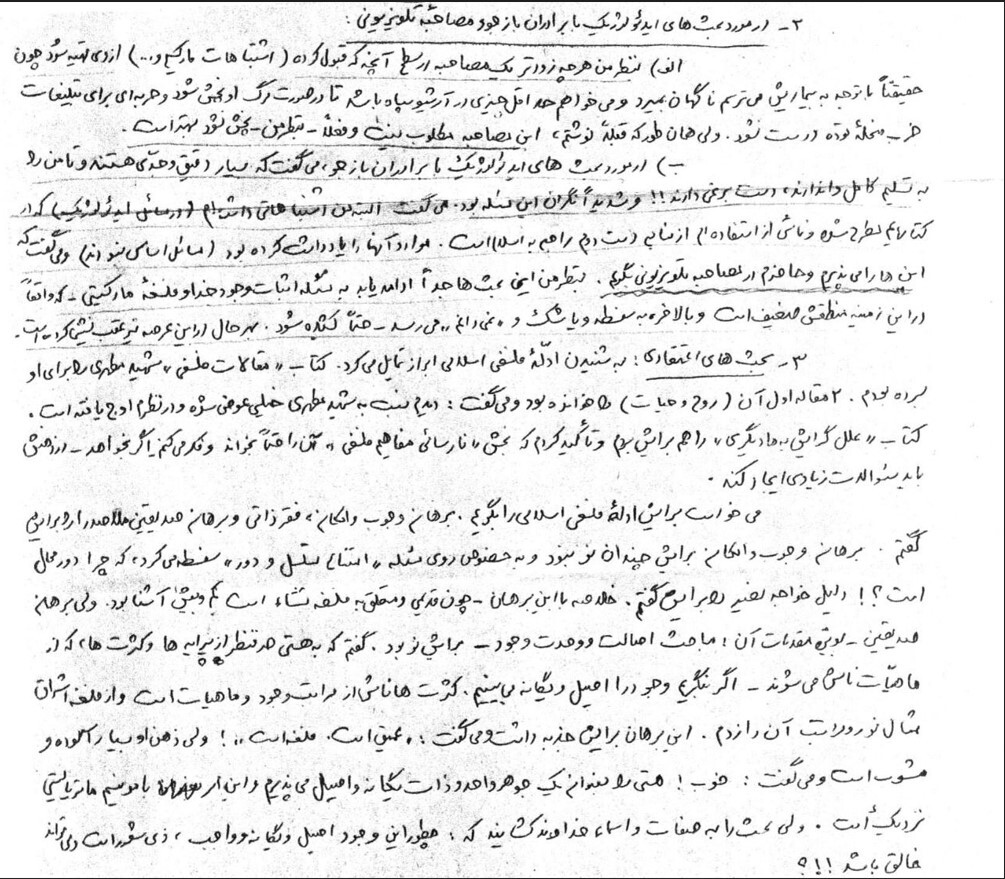 ۲- در مورد بحث های ایدئولوژیک با برادران بازجو و مصاحبهٔ تلویزیونی:
الف) بنظر من هر چه زودتر یک مصاحبه در سطح آنچه که قبول کرده (اشتباهات مارکسیسم و...) از وی تهیه شود چون
حقیقتاً با توجه به بیماریش می ترسم ناگهان بمیرد و می خواهم حداقل چیزی در آرشیو سپاه باشد تا در صورت مرگ او پخش شود و حربه ای برای تبلیغات
حزب منحلهٔ توده درست نشود. ولی همان طور که قبلاً نوشتم، این مصاحبه مطلوب نیست و فعلاً - بنظر من - پخش نشود بهتر است.
ب) در مورد بحث های ایدئولوژیک با برادران بازجو، می گفت که بسیار دقیق و جدّی هستند و تا من را
به تسلیم کامل واندارند، دست برنمی دارند!! و شدیداً نگران این مسئله بود. می گفت البته من اشتباهاتی داشته ام (در مسائل ایدئولوژیک) که در
کتابهایم مطرح شده و ناشی از استفاده ام از منابع دست دوم راجع به اسلام است. موارد آنها را یادداشت کرده بود (مسائل اساسی نبودند) و می گفت که
این ها را می پذیرم و حاضرم در مصاحبه تلویزیونی بگویم. بنظر من این بحث ها جداً ادامه یابد به مسئله اثبات وجود خدا و فلسفهٔ مارکسیستی - که واقعاً
در این زمینه منطقش ضعیف است و بالاخره به سفسطه و یا شک و «نمی دانم» می رسد - حتماً کشیده شود. بهر حال در این عرصه نیز عقب نشینی کرده است.
۳- بحث های اعتقادی: به شنیدن ادلّهٔ فلسفی اسلامی ابراز تمایل می کرد. کتاب «مقالات فلسفی» شهید مطهری را برای او
برده بودم. ۲ مقاله اول آن (روح و حیات) را خوانده بود و می گفت: دیدم نسبت به شهید مطهری خیلی عوض شده و در نظرم اوج یافته است.
کتاب «علل گرایش به مادیگری» را هم برایش بردم و تأکید کردم که بخش «نارسائی مفاهیم فلسفی» آن را حتماً بخواند و فکر می کنم اگر بخواند - در ذهنش
باید سئوالات زیادی ایجاد کند.
می خواست برایش ادلهٔ فلسفی اسلامی را بگویم. برهان وجوب و امکان، فقر ذاتی و برهان صدیقین ملاصدرا را برایش
گفتم. برهان وجوب و امکان برایش چندان نو نبود و به خصوص روی مسئله «امتناع تسلسل و دور» سفسطه می کرد، که چرا دور محال
است؟! دلیل خواجه نصیر را برایش گفتم. خلاصه با این برهان - چون قدیمی و متعلق به فلسفه مشاء است کم و بیش آشنا بود. ولی برهان
صدیقین - بویژه مقدمات آن: مباحث اصالت و وحدت وجود - برایش نو بود. گفتم که به هستی صرفنظر از پیرایه ها و کثرت ها، که از
ماهیّات ناشی می شوند - اگر بنگریم وجود را اصیل و یگانه می بینیم. کثرت ها ناشی از مراتب وجود و ماهیات است و از فلسفه اشراق
مثال نور و مراتب آن را زدم. این برهان برایش جذبه داشت و می گفت: «عمیق است. فلسفه است»! ولی ذهن او بسیار آلوده و
مشوب است و می گفت: خوب! هستی را بعنوان یک جوهر واحد و ذات یگانه و اصیل می پذیریم و این امر با مونیسم ماتریالیستی
نزدیک است. ولی بحث را به صفات و اسماء خداوند کشانید که: چطور این وجود اصیل و یگانه و واجب، ذی شعور است و می تواند
خالق باشد!!؟